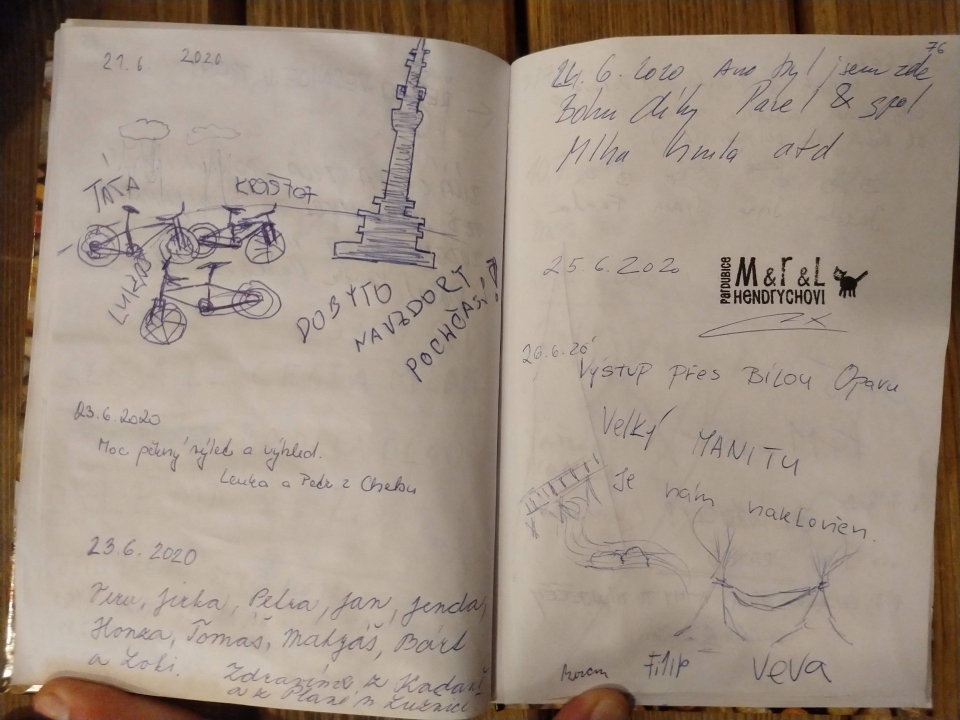 21.6 2020
TÁTA
KRYŠTOF
LUKÁŠ
DOBYTO
NAVZDORY
POČASÍ!
23.6.2020
Moc pěkný výlet a výhled.
Lenka a Petr z Chebu
23.6.2020
jirka, Petra, jan, jenda,
Honza, Tomáš, Matyáš, Bárt
a Loki. Zdravíme z Kadaně
a z Plané n Lužnicí
76
24.6.2020 Ano byl jsem zde
Bohu díky Pavel & spol
Mlha hnila atd
25.6.2020
PARDUBICE
M & r & L
HENDRYCHOVI
26.6.20
Výstup přes Bílou Opavu
Velký MANITU
je nám nakloněn.
Filip
Veva